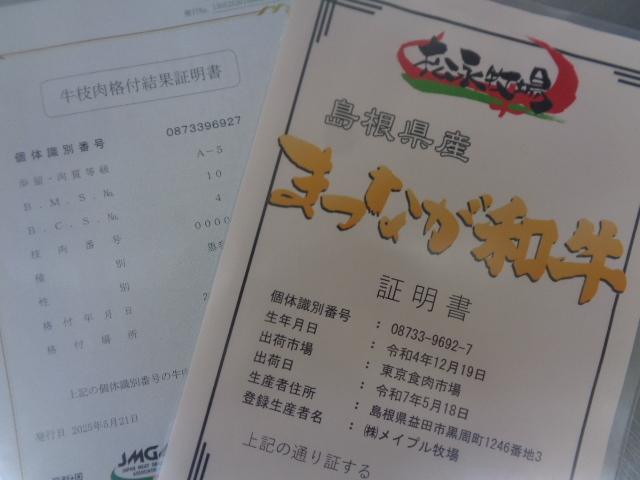 発行No.
牛枝肉格付結果証明書
個体識別番号 0873396927
歩留・肉質等級 A-5
B.M.S.No. 10
B.C.S.No. 4
枝肉番号 0000
種別
性別
格付年月日 2
格付場所
上記の個体識別番号の牛
発行日 2025年5月21日
JMGA
JAPAN MEAT GRADING ASSOCIATION
松永牧場
島根県産
まつなが和牛
証明書
個体識別番号 : 08733-9692-7
生年月日 : 令和4年12月19日
出荷市場 : 東京食肉市場
出荷日 : 令和7年5月18日
生産者住所 : 島根県益田市黒周町1246番地3
登録生産者名 : ㈱メイプル牧場
上記の通り証する